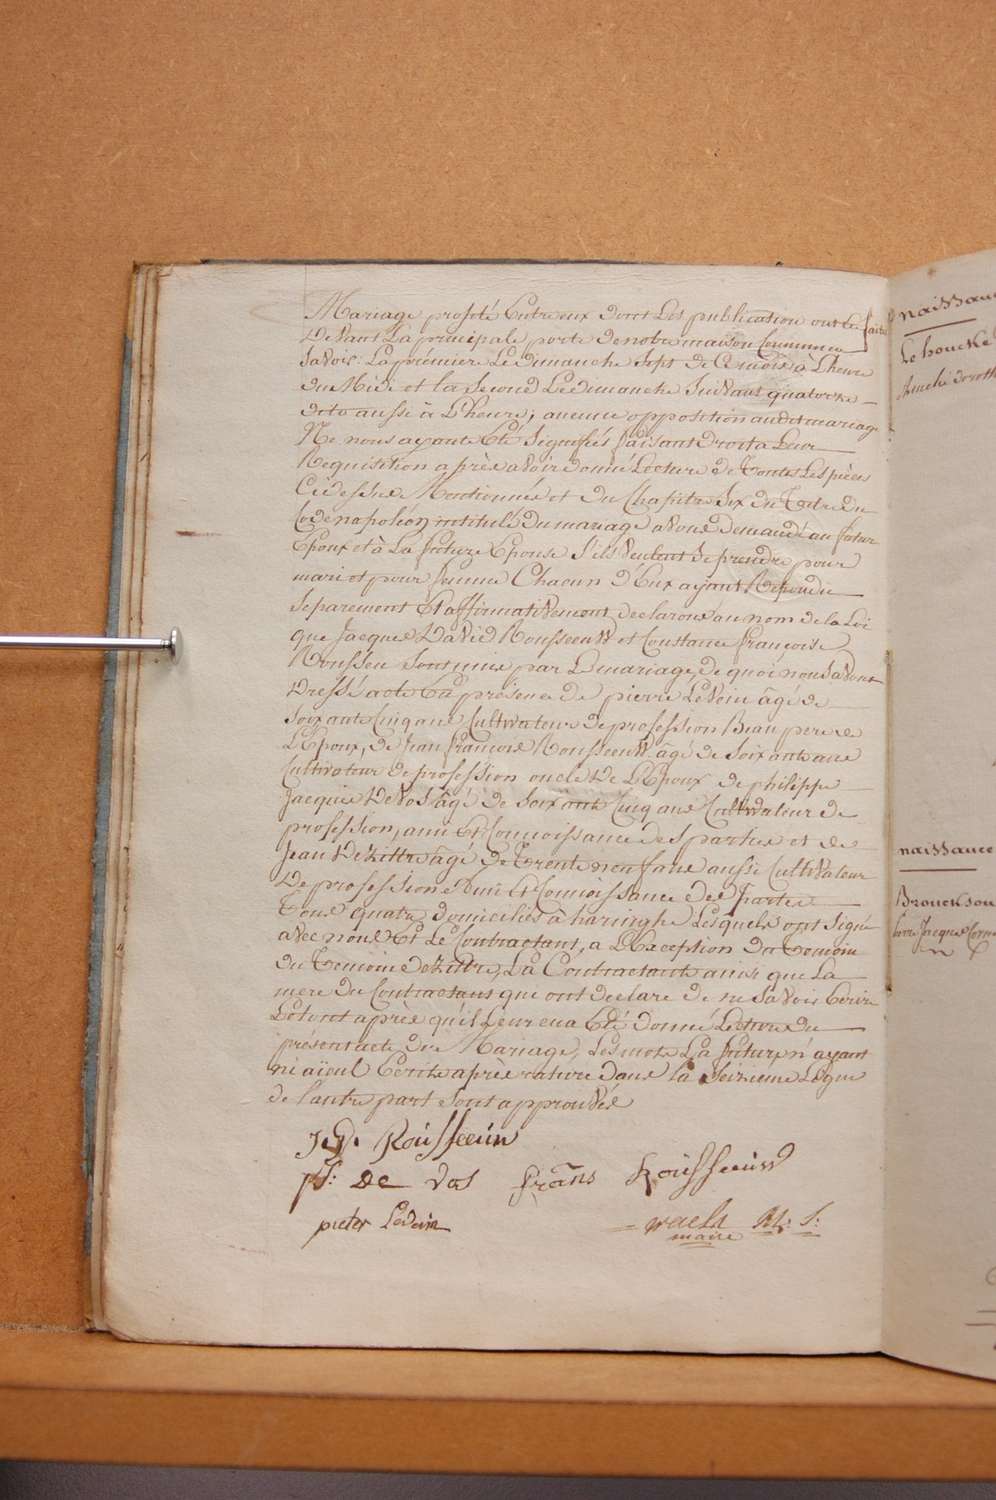 Mariage projeté Entre eux dont Les publication ont Eté faite
Devant La principale porte de notre maison Commune
savoir: La prémiere Le dimanche sept de Ce mois à L'heure
du Midi et la second Le dimanche suivant quatorze
dito aussi à L'heure, aucune opposition audit mariage
Ne nous ayante Eté signifiés faisant Droit a Leur
Requisition après avoir donné Lecture de Toutes Les pièces
Cidessue Mentionnés et du Chapitre six du Titre du
Code napoléon intitulé du mariage avone demandé au futur
Epoux et à La future Epouse S'ils veulent se prendre pour
mari et pour femme Chacun d'Eux ayant Repondu
separement Et affirmativement declarone au nom de la Loi
que Jacque David Rousseeuw et Constance françoise
Rousseu sont unie par Le mariage, de quoi nous avont
Dressé acte En présence de pierre Levein âgé de
soixante Cinq ane Cultivateur de profession Beau pere de
L'Epoux, de Jean françois Rousseeuw âgé de soixante ane
Cultivateur de profession oncle De L'Epoux de philippe
Jacquie De Vos âgé de soixant Cinq ane Cultivateur de
profession, ami Et Connoissance des parties et de
Jean Dekittre âgé de Trente neuf ane aussi Cultivateur
De profession Ami Et Connoissance dee partee
Toue quatre domiciliés à haringhe Lesquels ont signé
avec noue Et Le Contractant, a L'Exception du Temoin
du Temoin Dekittre, La Contractante ainsi que La
mere du Contractans que ont declare de ne savoir Ecrire
Le tout apree qu'il Leur en a Eté donné Lecture du
présent acte de Mariage, Les mots La future n'ayant
ni aÿeul Ecrite aprèe rature dane la seizième Ligne
de l'autre part sont approuvés
J. D. Rousseeuw
pJ: de Vos frans Rousseeuw
pieter Levein
waels M: S:
maire
naissance
Le houcke
Amelie doroth
naissance
Brouckson